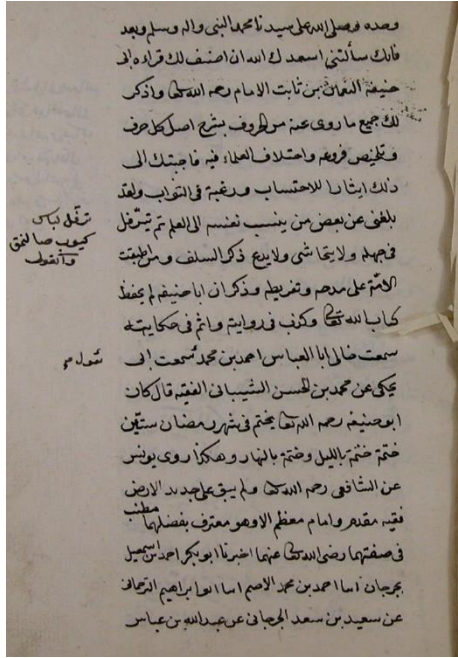 وحده وصلى الله على سيدنا محمد النبي واله وسلم وبعد
فانك سألتني اسعدك الله ان اصنف لك قراءة ابى
حنيفة النعمان بن ثابت الامام رحمه الله تعا واذكر
لك جميع ما روى عنه من الحروف بشرح اصل كل حرف
وتلخيص فروعه واختلاف العلماء فيه فاجبتك الى
ذلك ايثارا للاحتساب ورغبة فى الثواب ولقد
بلغنى عن بعض من ينسب نفسه الى العلم ثم يترفل
فى جهله ولا يتحاشى ولا يدع ذكر السلف ومن اطبقت
الامة على مدحه وتقريظه وذكر ان ابا حنيفة لم يحفظ
كتاب الله تعا وكذب فى روايته واثم فى حكايته
سمعت خالى ابا العباس احمد بن محمد سمعت ابى
يحكى عن محمد بن الحسن الشيبانى الفقيه قال كان
ابو حنيفة رحمه الله تعا يختم فى شهر رمضان ستين
ختمة ختمة بالليل وختمة بالنهار وهكذا روى يونس
عن الشافعى رحمه الله تعا ولم يبق على جديد الارض
فقيه مقدم وامام معظم الا وهو معترف بفضلهما مطنب
فى صفتهما رضى الله تعا عنهما اخبرنا ابو بكر احمد بن اسمعيل
بجرجان اسا احمد بن محمد الاصم اسا ابو ابراهيم الترجمانى
عن سعيد بن سعد الجرجانى عن عبد الله بن عباس
ترفل لباس